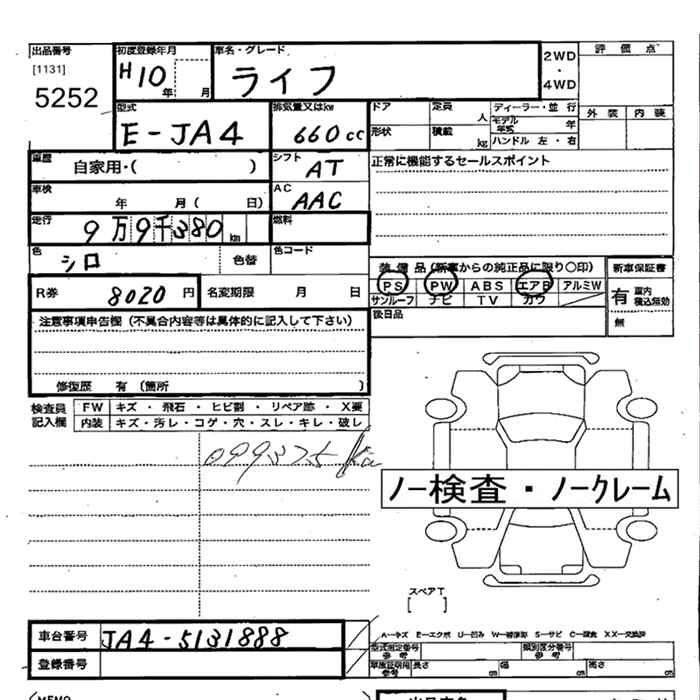 出品番号
[1131]
5252
初度登録年月
H10 年 月
車名・グレード
ライフ
2WD
・
4WD
評価点
外装 内装
型式
E-JA4
排気量又はkw
660cc
ドア
定員 人
ディーラー・並行
モデル年式 年
形状
積載 kg
ハンドル 左・右
車歴
自家用・( )
シフト
AT
正常に機能するセールスポイント
車検
年 月( 日)
AC
AAC
走行
9万9千380 km
燃料
色
シロ
色替
色コード
装備品(新車からの純正品に限り○印)
PS PW ABS エアB アルミW
サンルーフ ナビ TV カワ
新車保証書
有 車内 積込無効
無
R券
8020 円
名変期限 月 日
後日品
注意事項申告欄(不具合内容等は具体的に記入して下さい)
修復歴 有(箇所 )
検査員記入欄
FW キズ・飛石・ヒビ割・リペア跡・X要
内装 キズ・汚レ・コゲ・穴・スレ・キレ・破レ
099375 km
ノー検査・ノークレーム
スペアT
[ ]
車台番号
JA4-5131888
登録番号
A-キズ E-エクボ U-凹み W-補修跡 S-サビ C-腐食 XX-交換跡
型式指定番号 参考
類別区分番号 参考
車庫証明用 参考
長さ cm
幅 cm
高さ cm
MEMO
出品店名